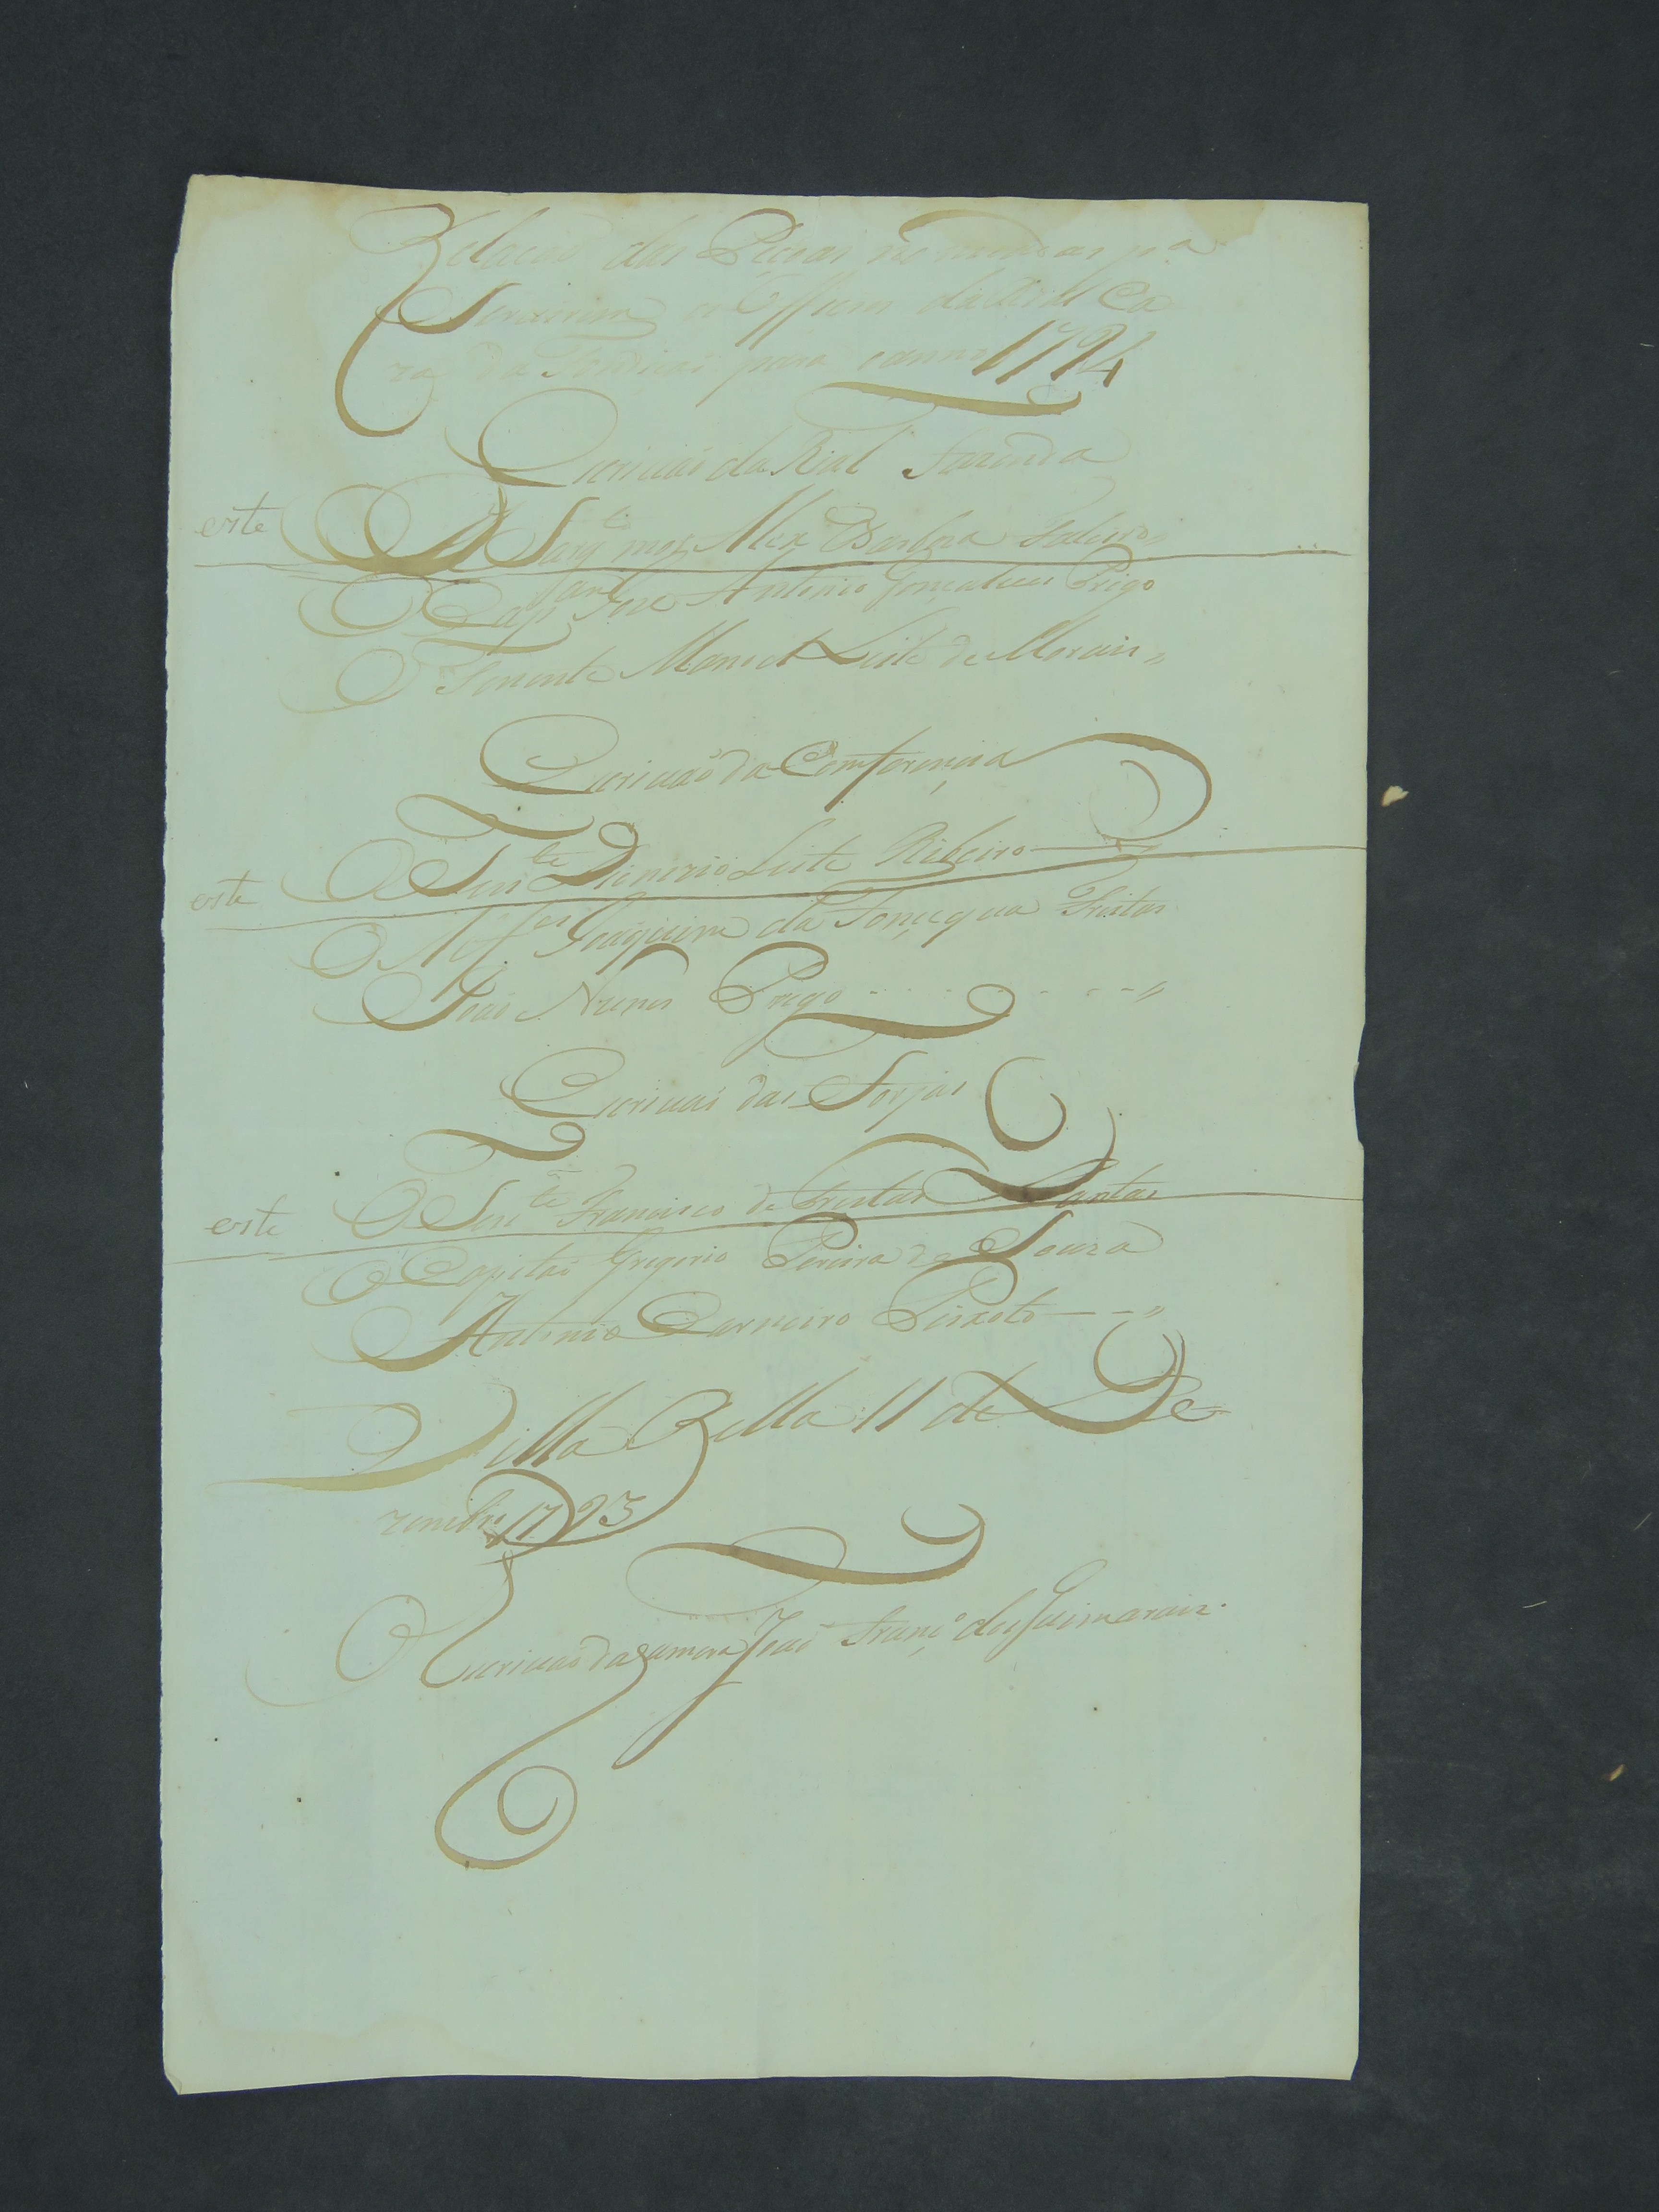 Relacaõ das Peçoas nomeadas p.ª
Servirem os Officios da Rial Ca
za da Fundicaõ para o anno 1794
Escrivaõ da Rial Fazenda
este O Sarg.to mor Alex Barboza Faleiro
O Cap.am Joze Antonio Gonçalves Prego
O Tenente Manoel Leite de Morais
Escrivaõ da Comferençia
este O Ten.te Dionizio Leite Ribeiro
O Alferes Joaquim da Fonçequa Freitas
João Nunes Prego
Escrivaõ das Forjas
este O Ten.te Francisco de Freitas Dantas
O Capitaõ Gregorio Pereira de Souza
Antonio Carneiro Peixoto
Villa Bella 11 de De
zembro 1793
O Escrivaõ da Camera Joaõ Franç.º de Guimarais